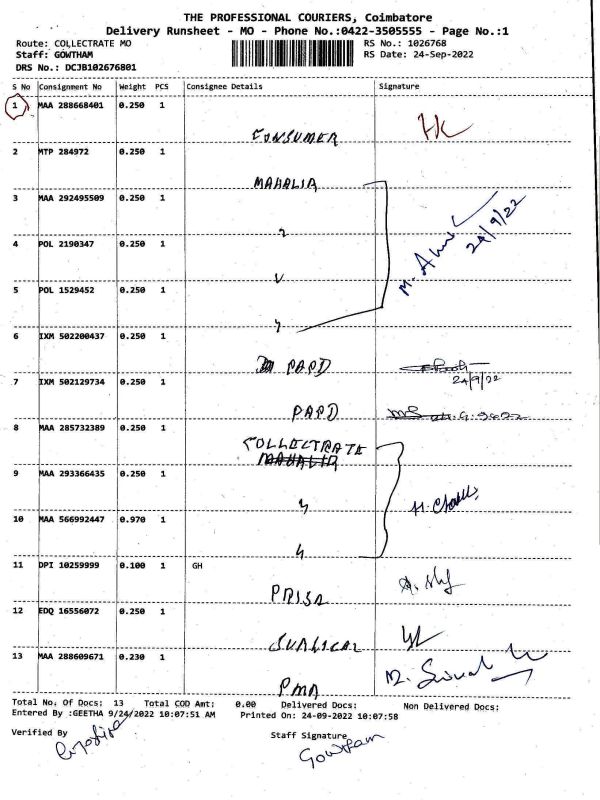 THE PROFESSIONAL COURIERS, Coimbatore
Delivery Runsheet - MO - Phone No.:0422-3505555 - Page No.:1
Route: COLLECTRATE MO RS No.: 1026768
Staff: GOWTHAM RS Date: 24-Sep-2022
DRS No.: DCJB102676801
S No Consignment No Weight PCS Consignee Details Signature
1 MAA 288668401 0.250 1
CONSUMER
2 MTP 284972 0.250 1
MAHALIA
3 MAA 292495509 0.250 1
24/9/22
4 POL 2190347 0.250 1
5 POL 1529452 0.250 1
6 IXM 502200437 0.250 1
PAPD
24/9/22
7 IXM 502129734 0.250 1
PAPD
8 MAA 285732389 0.250 1
COLLECTRATE
9 MAA 293366435 0.250 1
10 MAA 566992447 0.970 1
11 DPI 10259999 0.100 1 GH
12 EDQ 16556072 0.250 1
13 MAA 288609671 0.230 1
PMA
Total No. Of Docs: 13 Total COD Amt: 0.00 Delivered Docs: Non Delivered Docs:
Entered By :GEETHA 9/24/2022 10:07:51 AM Printed On: 24-09-2022 10:07:58
Verified By Staff Signature
Gowtham